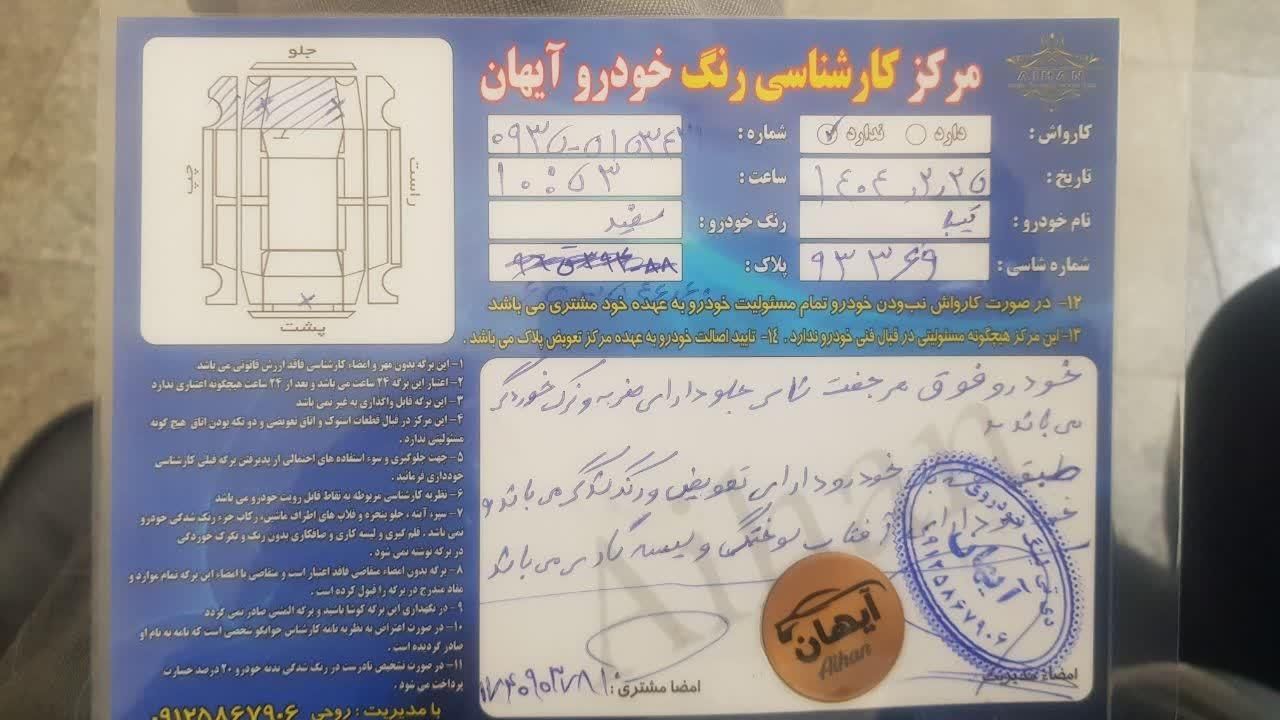 مرکز کارشناسی رنگ خودرو آیهان
AIHAN
کارواش : دارد ندارد شماره :
تاریخ : ۱۴۰۴,۲,۲۵ ساعت : ۱۰:۵۳
نام خودرو : تیبا رنگ خودرو : سفید
شماره شاسی : پلاک :
۱۲- در صورت کارواش نبودن خودرو تمام مسئولیت خودرو به عهده خود مشتری می باشد
۱۳- این مرکز هیچگونه مسئولیتی در قبال فنی خودرو ندارد . ۱۴- تایید اصالت خودرو به عهده مرکز تعویض پلاک می باشد .
جلو
چپ
راست
پشت
خودرو فوق هر جفت شاسی جلو دارای ضربه و ترک خوردگی
می باشد
طبق خودرو دارای تعویض و رنگ شدگی می باشد و
آفتاب سوختگی و لیسه گیری می باشد
آیهان
Aihan
۰۹۱۲۵۸۶۷۹۰۶
امضاء مدیریت :
امضا مشتری :
۱- این برگه بدون مهر و امضاء کارشناسی فاقد ارزش قانونی می باشد
۲- اعتبار این برگه ۲۴ ساعت می باشد و بعد از ۲۴ ساعت هیچگونه اعتباری ندارد
۳- این برگه قابل واگذاری به غیر نمی باشد
۴- این مرکز در قبال قطعات استوک و اتاق تعویضی و دو تکه بودن اتاق هیچ گونه
مسئولیتی ندارد .
۵- جهت جلوگیری و سوء استفاده های احتمالی از پذیرفتن برگه قبلی کارشناسی
خودداری فرمائید .
۶- نظریه کارشناسی مربوطه به نقاط قابل رویت خودرو می باشد
۷- سپر، آینه ، جلو پنجره و فلاپ های اطراف ماشین، رکاب جزء رنگ شدگی خودرو
نمی باشد . قلم گیری و لیسه کاری و صافکاری بدون رنگ و نکرک خوردگی
در برگه نوشته نمی شود .
۸- برگه بدون امضاء متقاضی فاقد اعتبار است و متقاضی با امضاء این برگه تمام موارد و
مفاد مندرج در برگه را قبول کرده است .
۹- در نگهداری این برگه کوشا باشید و برگه المثنی صادر نمی گردد
۱۰- در صورت اعتراض به نظریه نامه کارشناس جوابگو شخصی است که نامه به نام او
صادر گردیده است .
۱۱- در صورت تشخیص نادرست در رنگ شدگی بدنه خودرو ۲۰ درصد خسارت
پرداخت می شود .
با مدیریت : روحی ۰۹۱۲۵۸۶۷۹۰۶